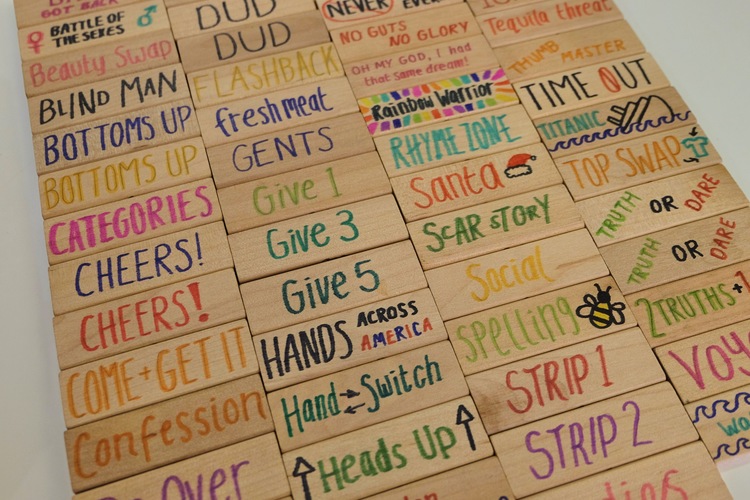 GOT BACK
BATTLE OF
THE SEXES
Beauty Swap
BLIND MAN
BOTTOMS UP
BOTTOMS UP
CATEGORIES
CHEERS!
CHEERS!
COME + GET IT
Confession
Over
DUD
DUD
FLASHBACK
fresh meat
GENTS
Give 1
Give 3
Give 5
HANDS ACROSS
AMERICA
Hand Switch
Heads Up
NEVER EVER
NO GUTS
NO GLORY
OH MY GOD, I had
that same dream!
Rainbow Warrior
RHYME ZONE
Santa
SCAR STORY
Social
spelling
STRIP 1
STRIP 2
Tequila threat
THUMB MASTER
TIME OUT
TITANIC
TOP SWAP
TRUTH OR DARE
TRUTH OR DARE
2 TRUTHS + 1